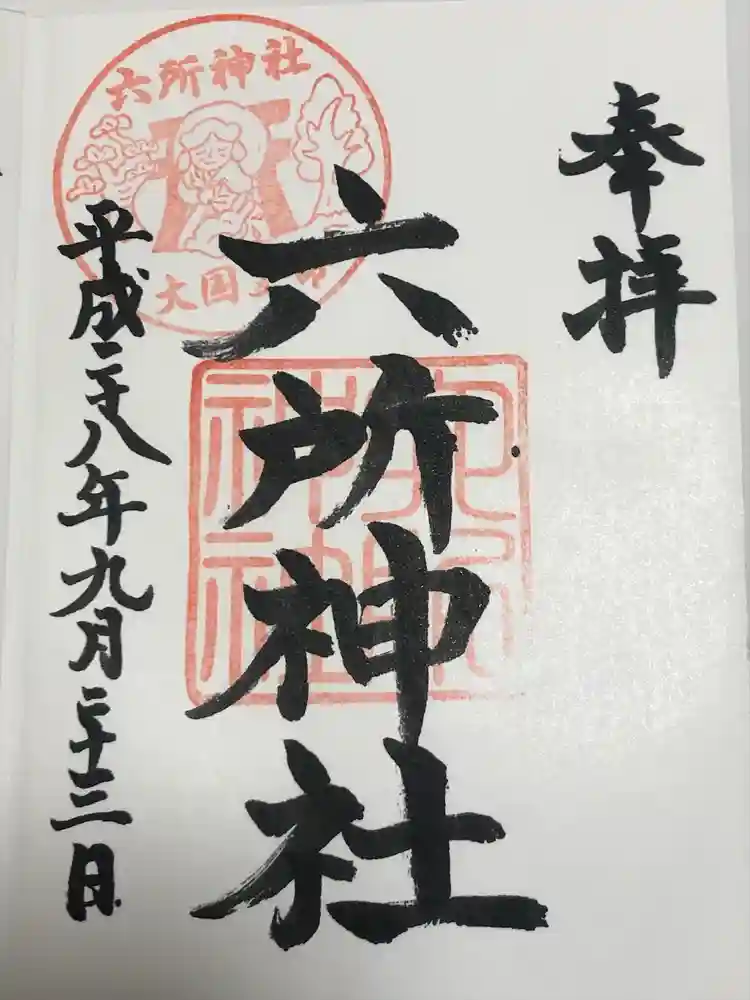 奉拝
六所神社
平成二十八年九月二十三日
六所神社
大国主命
六所
神社